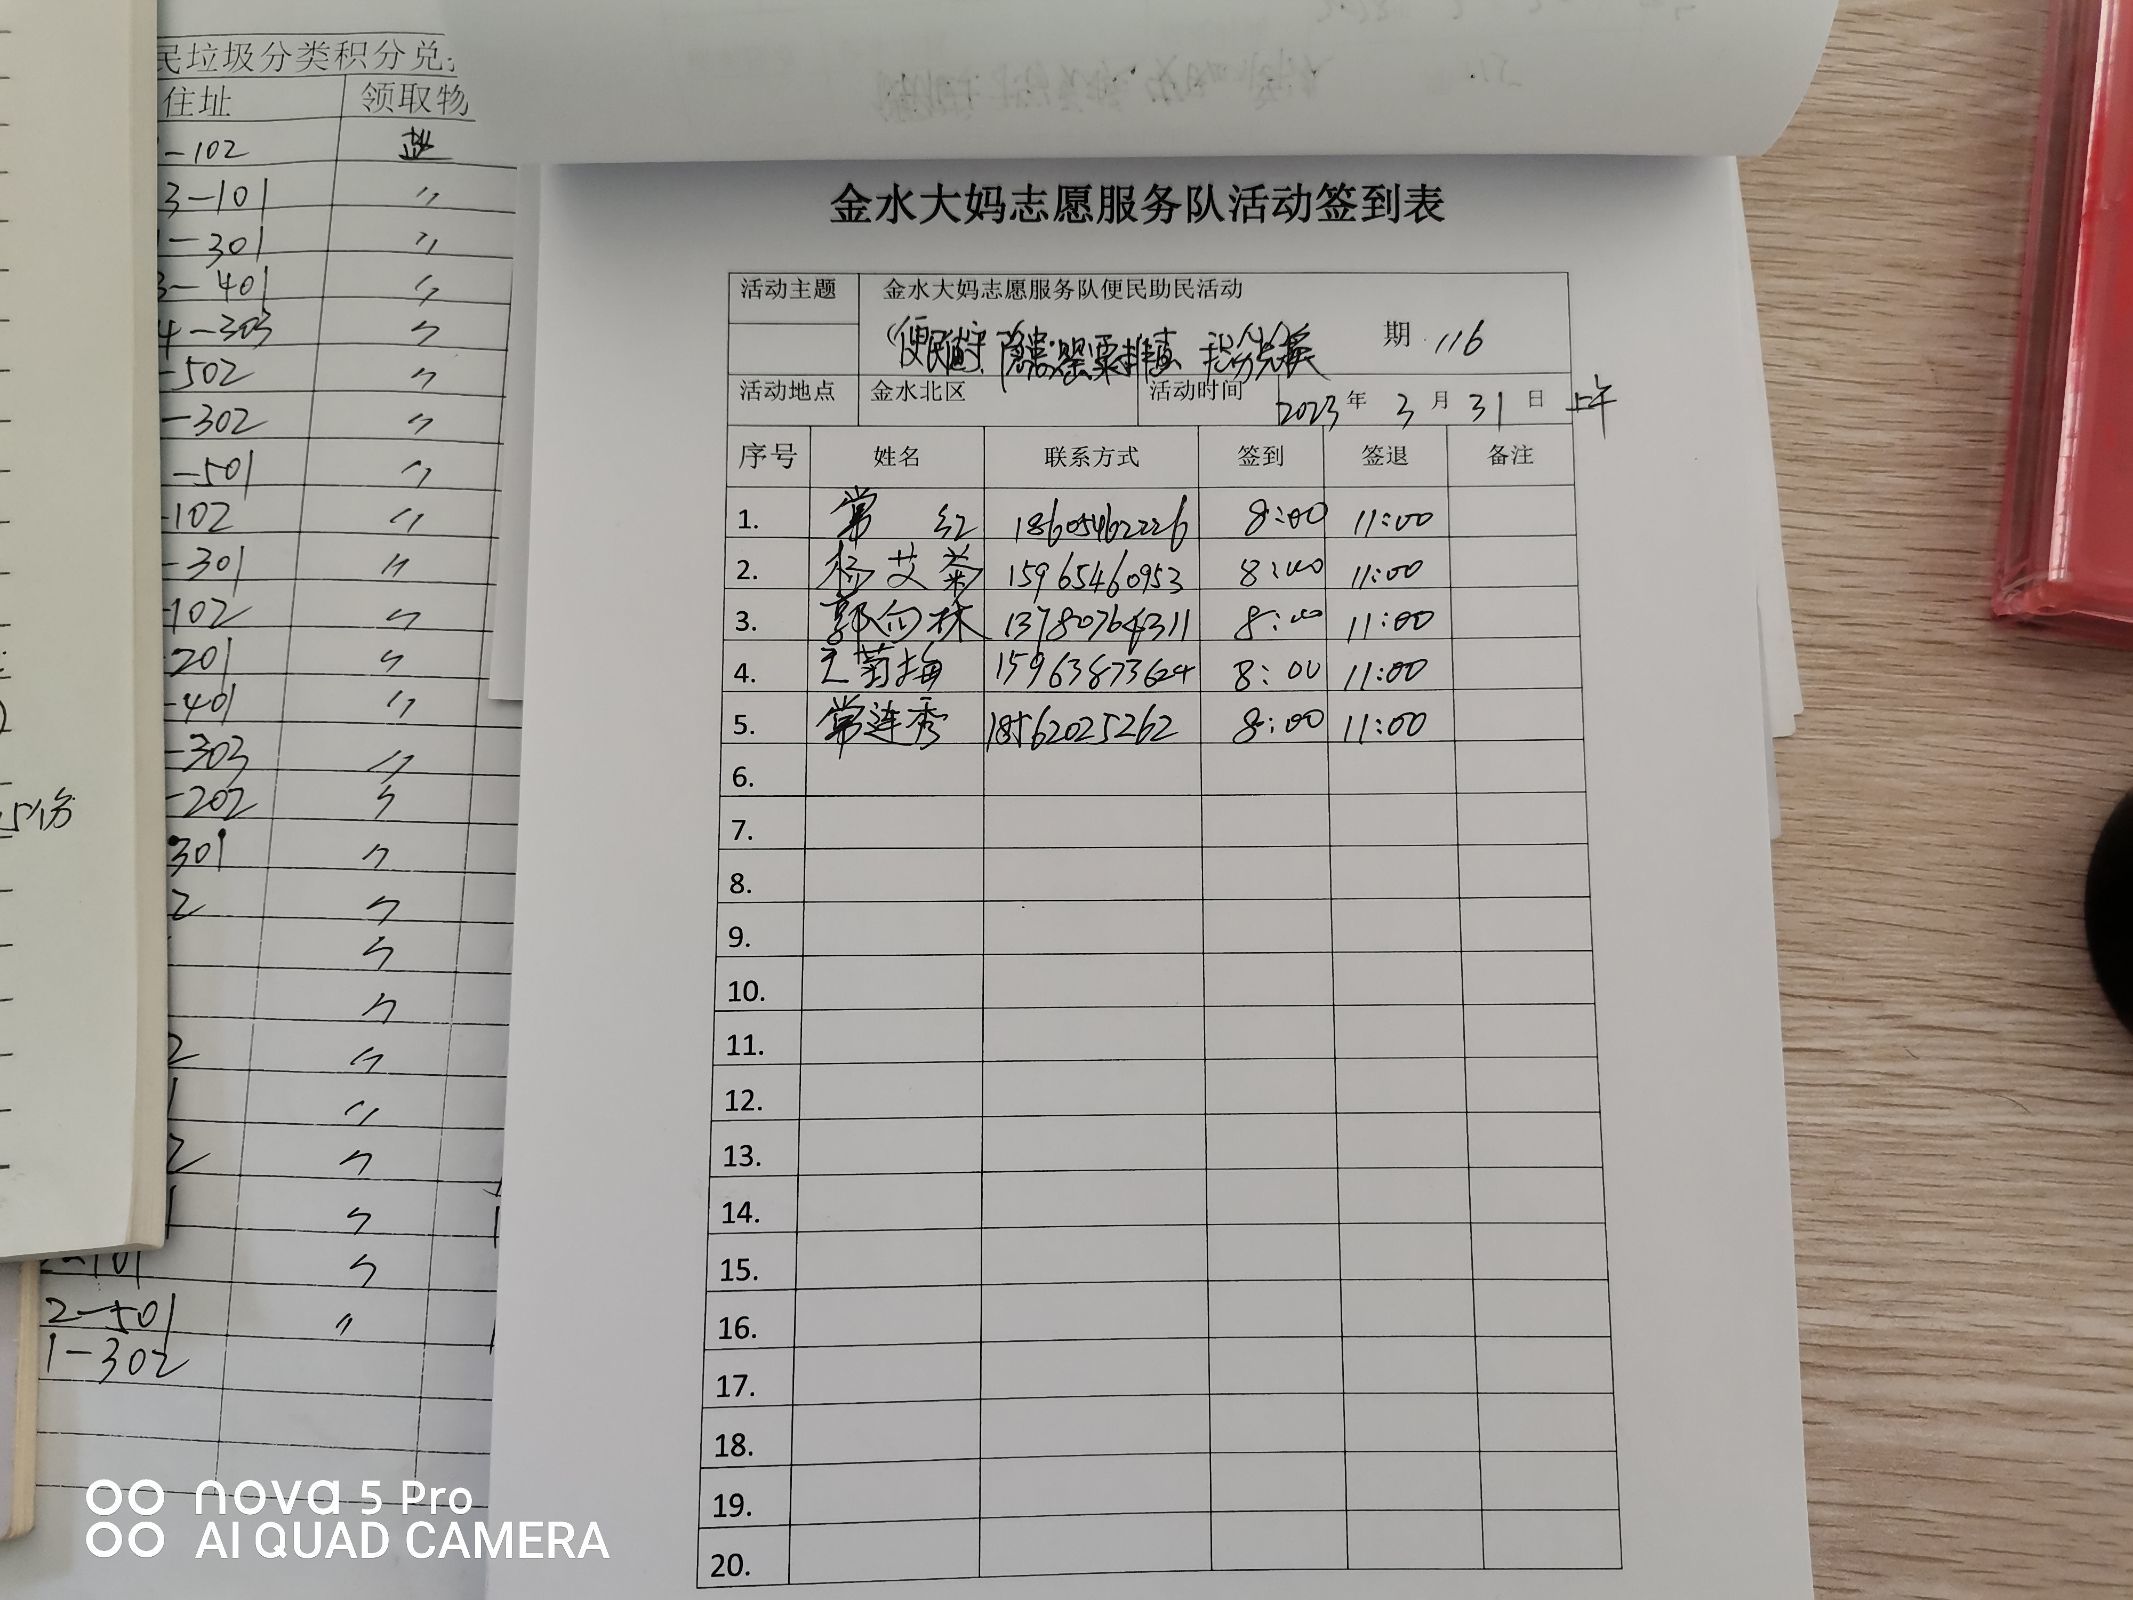 民垃圾分类积分兑
住址 领取物
-102 盐
3-101 〃
1-301 〃
3-401 〃
4-303 〃
-502 〃
-302 〃
-501 〃
-102 〃
-301 〃
-102 〃
-201 〃
-401 〃
-303 〃
-202 〃
301 〃
2 〃
〃
〃
2 〃
1 〃
2 〃
1 〃
2-101 〃
2-501 〃
1-302
5份
金水大妈志愿服务队活动签到表
活动主题 金水大妈志愿服务队便民助民活动
便民 罂粟排查 积分兑换 期 116
活动地点 金水北区 活动时间 2023 年 3 月 31 日 上午
序号 姓名 联系方式 签到 签退 备注
1. 常红 18605462226 8:00 11:00
2. 杨艾菊 15965460953 8:00 11:00
3. 郭向林 13780764311 8:00 11:00
4. 王菊梅 15963873624 8:00 11:00
5. 常连秀 18562025262 8:00 11:00
6.
7.
8.
9.
10.
11.
12.
13.
14.
15.
16.
17.
18.
19.
20.
nova 5 Pro
AI QUAD CAMERA